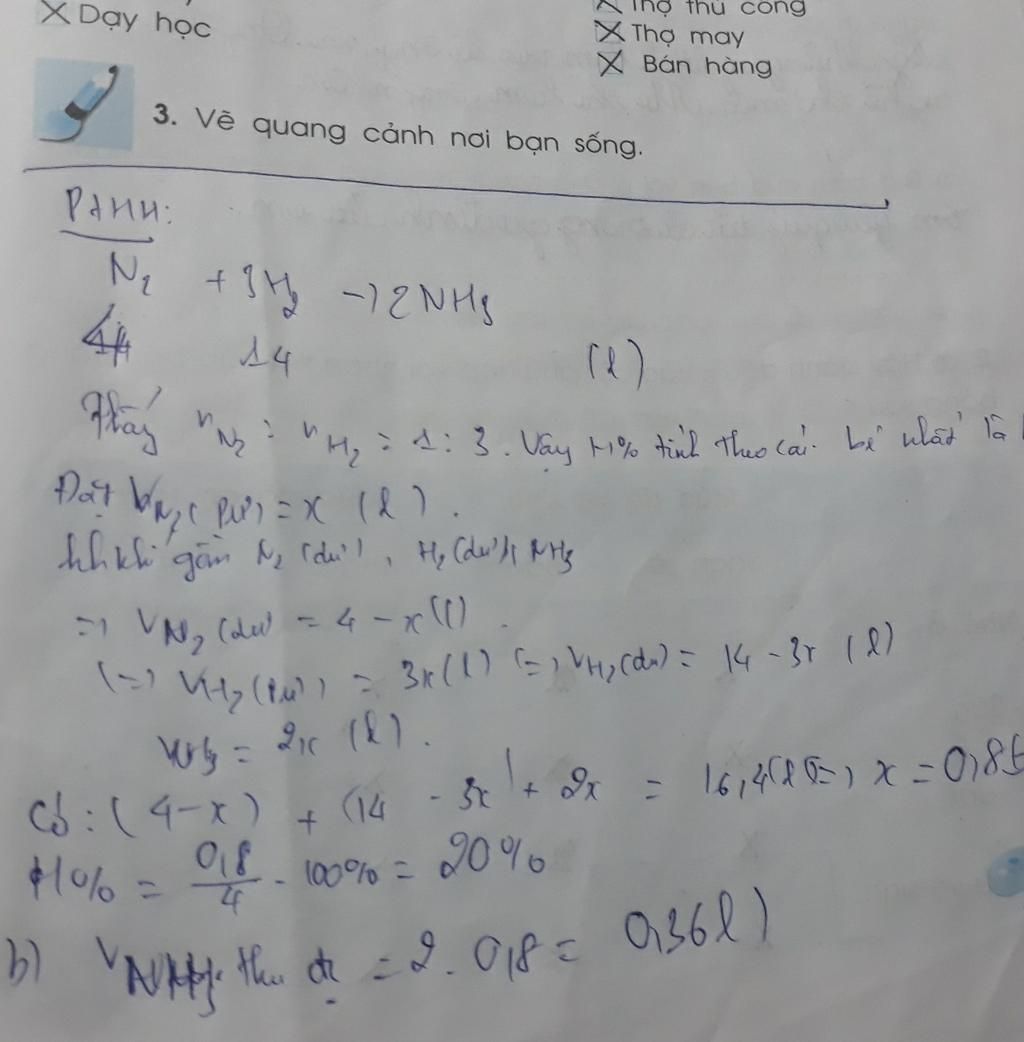 Dạy học
Thợ thủ công
Thợ may
Bán hàng
3. Vẽ quang cảnh nơi bạn sống.
PTHH:
N2 + 3H2 -> 2NH3
14 (l)
Thấy VN2 : VH2 = 1 : 3. Vậy H% tính theo cái bé nhất là
Đặt VN2(pư) = x (l).
hh khí gồm N2 (dư), H2 (dư), NH3
=> VN2 (dư) = 4 - x (l).
(=) VH2(pư) = 3x (l) (=) VH2(dư) = 14 - 3x (l)
= 2x (l).
Có: (4-x) + (14 - 3x) + 2x = 16,4(l) (=) x = 0,8
H% = 0,8/4 . 100% = 20%
b) VNH3 thu đc = 2 . 0,8 = 0,36l)